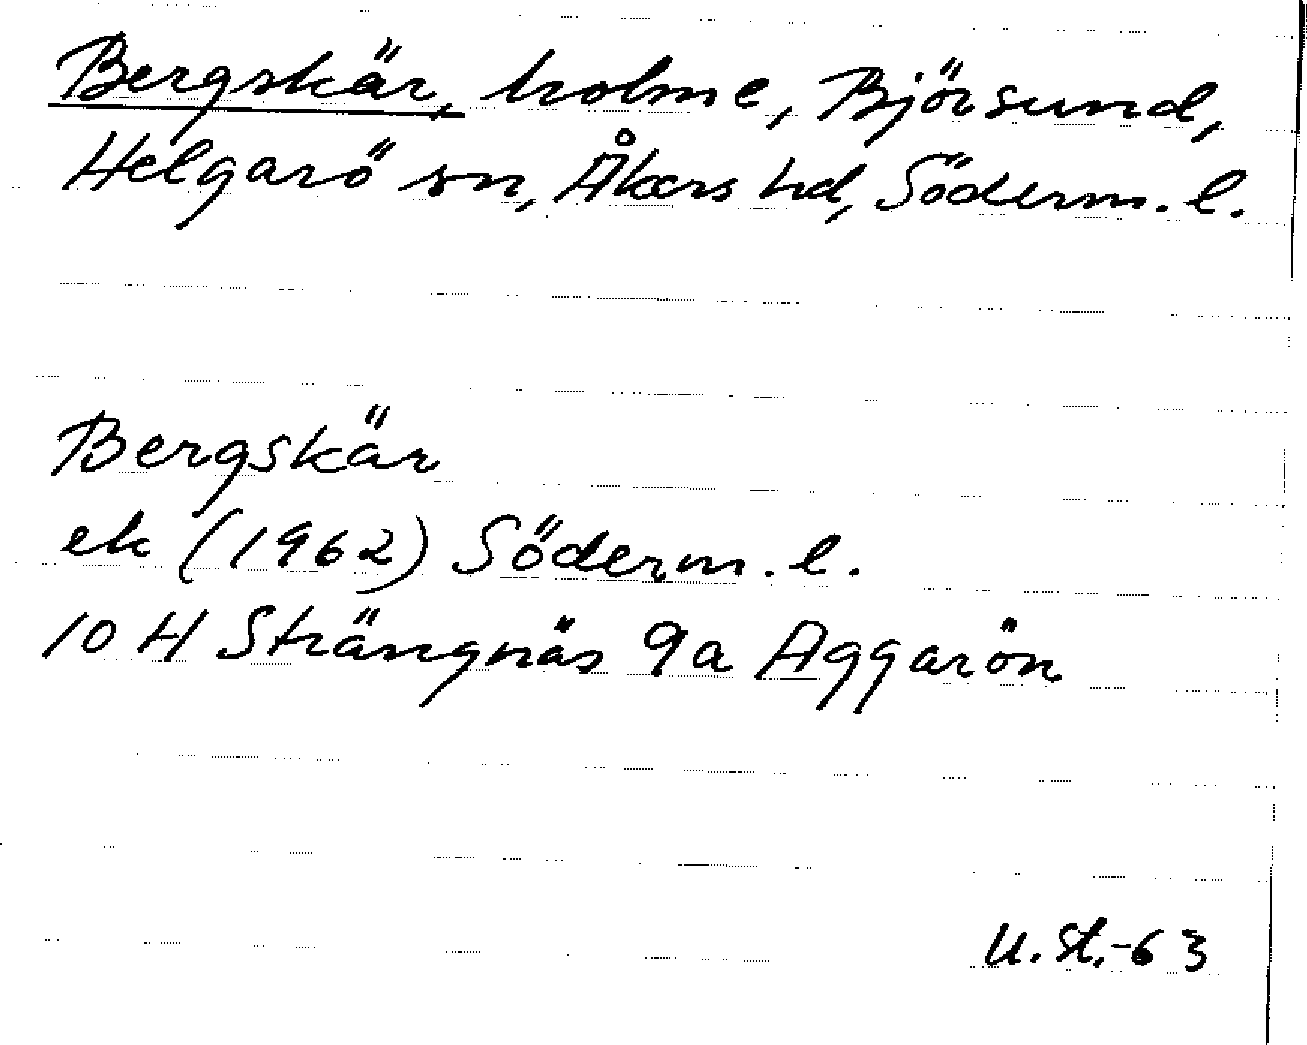 Bergskär, holme, Björsund,
Helgarö sn, Åkers hd, Söderm. l.
Bergskär
ek (1962) Söderm. l.
10 H Strängnäs 9a Aggarön
U. St. -63